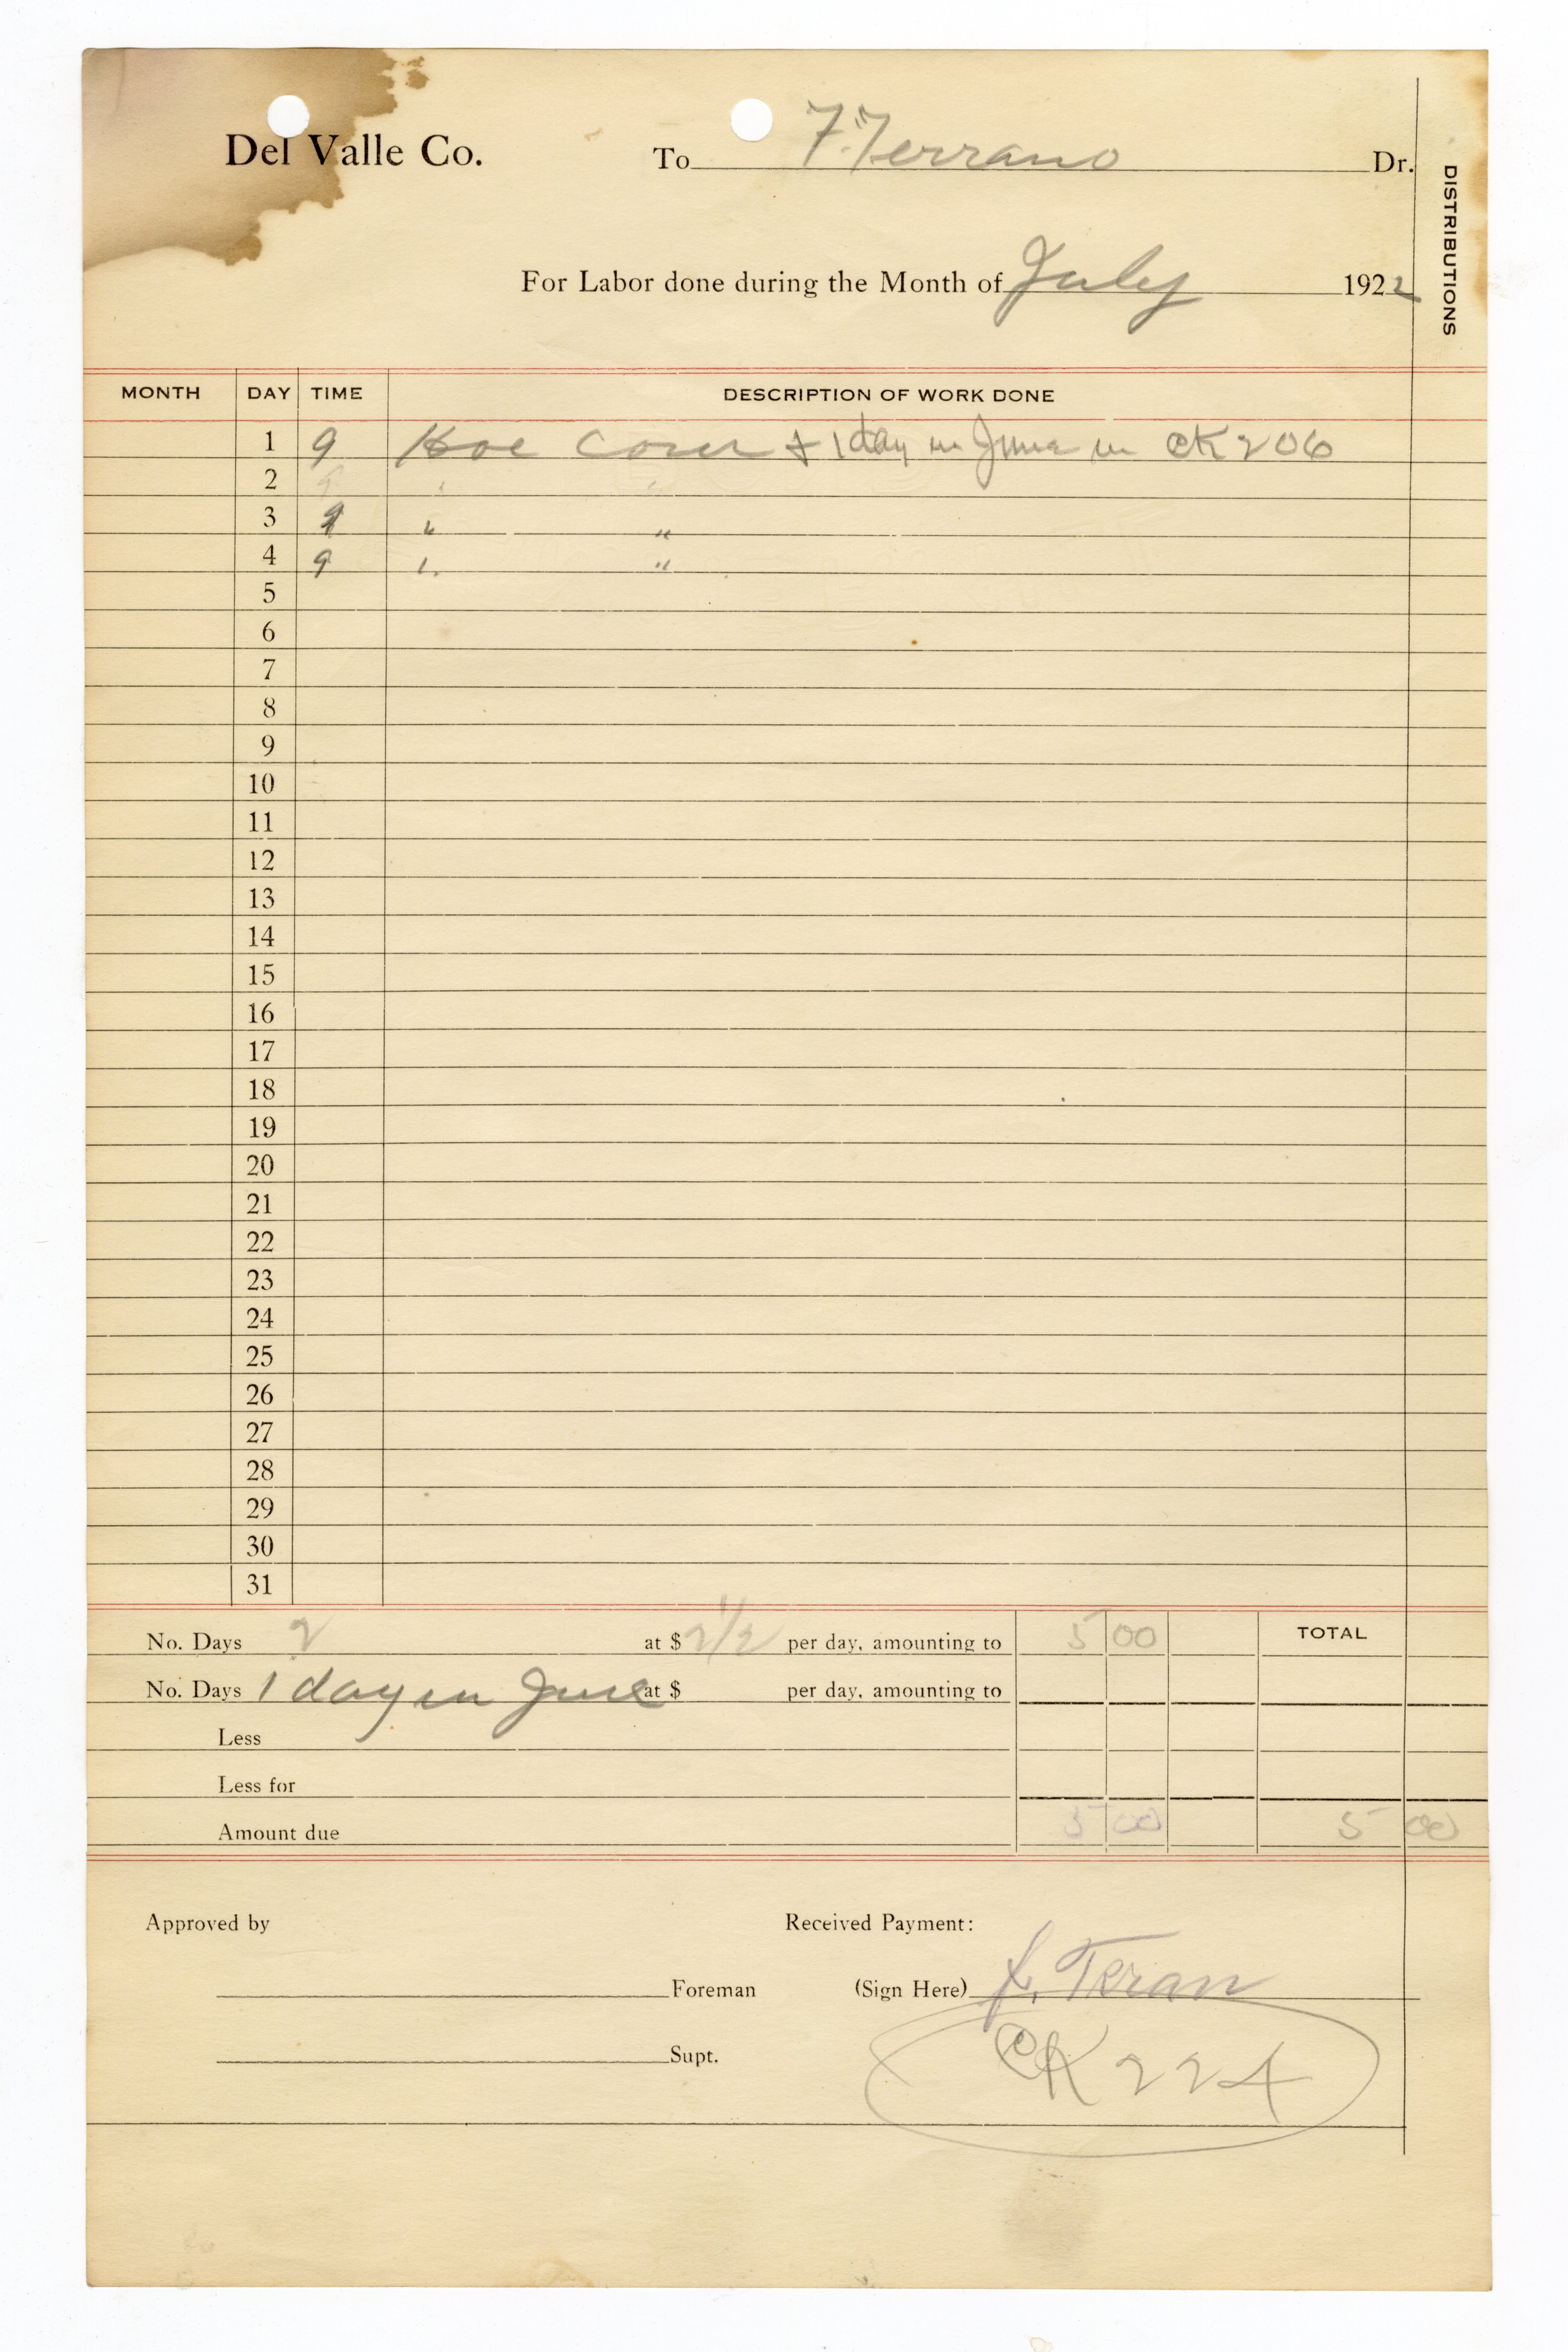 Del Valle Co. To F. Terrano Dr.
DISTRIBUTIONS
For Labor done during the Month of July 1922
MONTH DAY TIME DESCRIPTION OF WORK DONE
1 9 Hoe Corn + 1 day in June in CK 206
2 9 " "
3 9 " "
4 9 " "
5
6
7
8
9
10
11
12
13
14
15
16
17
18
19
20
21
22
23
24
25
26
27
28
29
30
31
No. Days 2 at $ 2 1/2 per day, amounting to 5 00 TOTAL
No. Days 1 day in June at $ per day, amounting to
Less
Less for
Amount due 5 00 5 00
Approved by Received Payment:
Foreman (Sign Here) f. Teran
Supt. CK 224